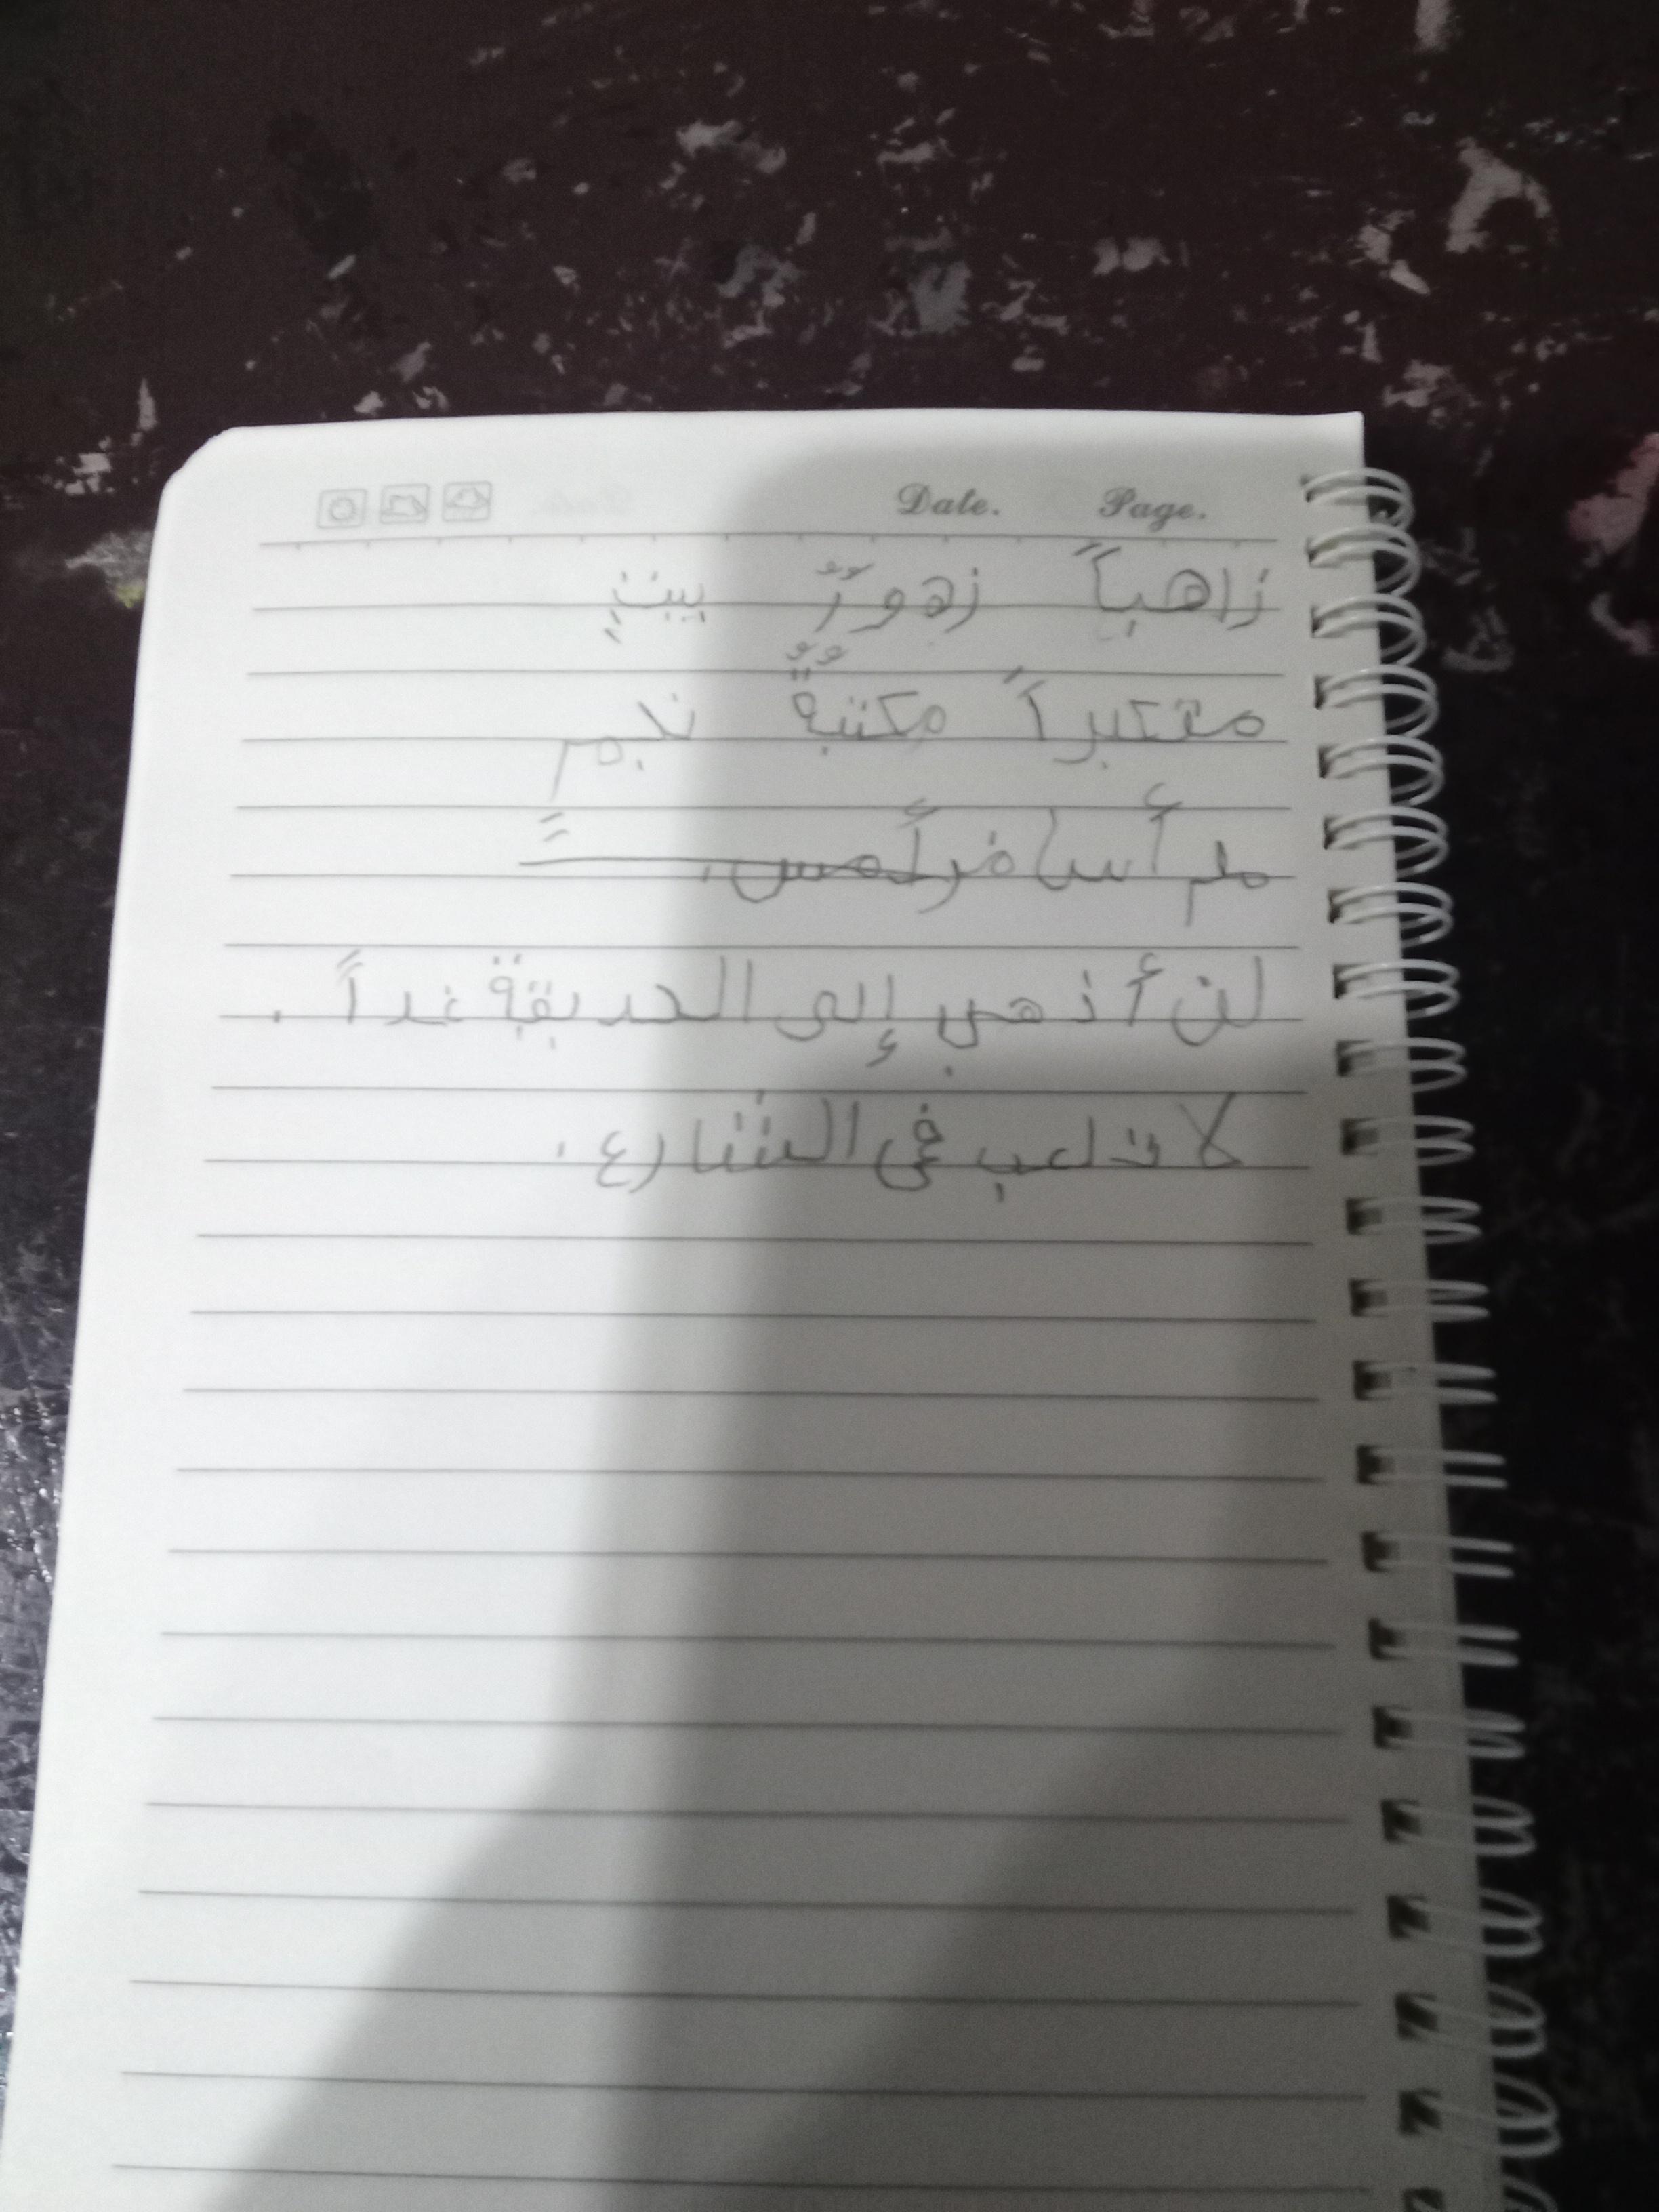 Date. Page.
زاهياً زهورٌ بيتٍ
متكبراً مكتبةٌ نجم
لم أسافر أمس.
لن أذهب إلى الحديقة غداً.
لا تلعب في الشارع.